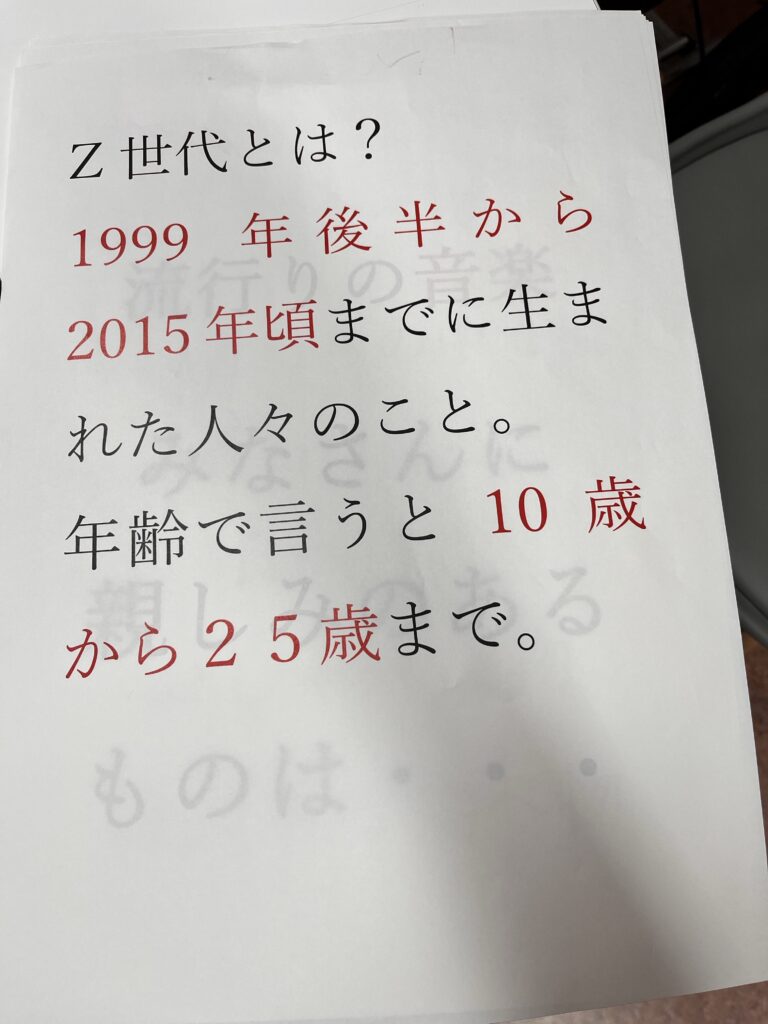 Z 世代とは？
1999 年後半から
2015年頃までに生ま
れた人々のこと。
年齢で言うと 10 歳
から２５歳まで。
流行りの音楽
みなさんに
親しみのある
ものは・・・